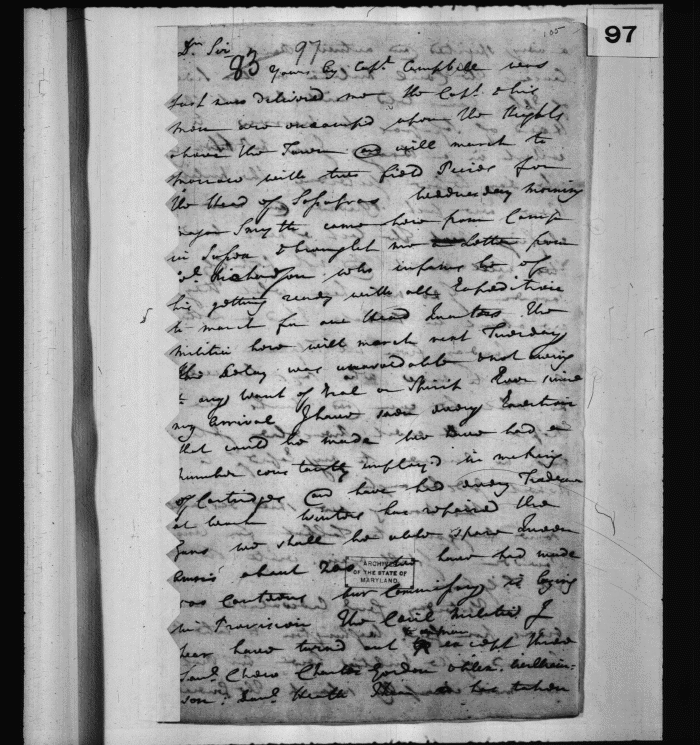 97
105
Dr Sir
83 97
yours by Capt. Campbell was
just now delivered me the Capt. & his
men are encamped upon the Hights
above the Town and will march to
morrow with two field Pieces for
the Head of Sasafras Wednesday morning
Major Smyth came here from Camp
in Susex & brought me Letter from
Col. Richardson who informs me of
his getting ready with all Expedition
to march for our Head Quarters the
militia here will march next Tuesday
the Delay was unavoidable & not owing
to any want of Zeal or Spirit Ever since
my Arrival I have seen every Exertion
that could be made we have had a
number constantly employ'd in making
of Cartridges and have had every Tradesman
at work has repaired the
Guns we shall be able spare Queen
Anns about 200, have had made
our Commissary is laying
in Provision The Cecil militia I
hear have turned out to a man except three
Saml. Chew Charles Gordon William-
son. Danl. Heath has taken
ARCHIVES
OF THE STATE OF
MARYLAND